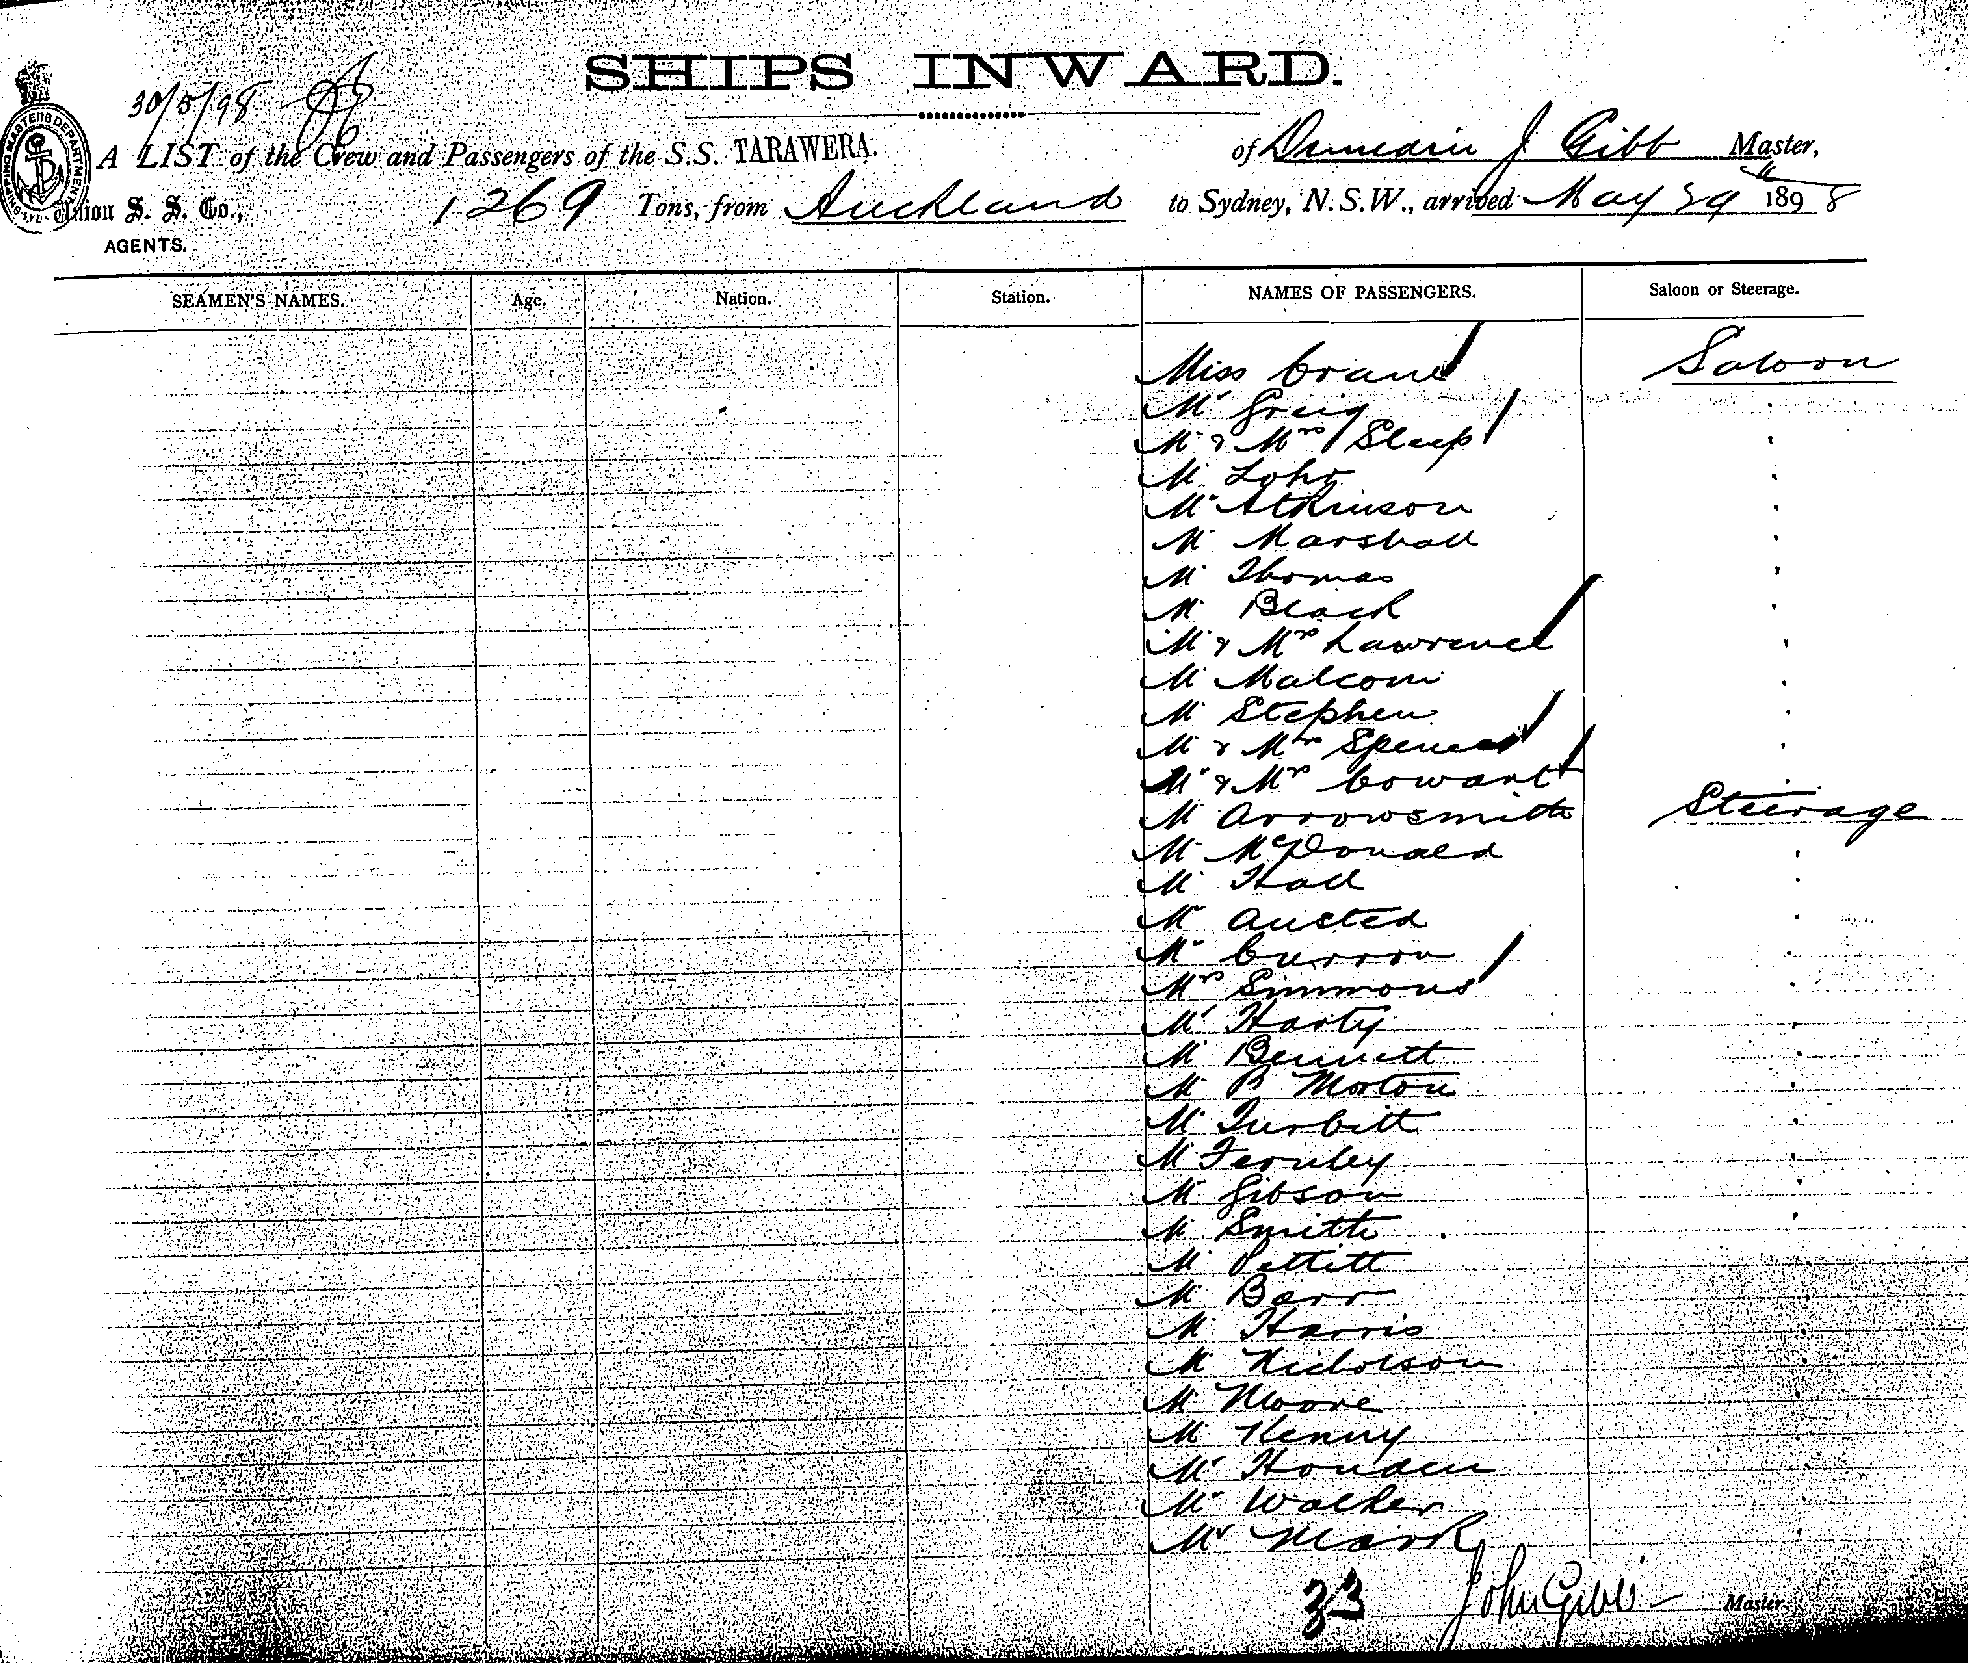 SHIPS INWARD.
30/5/98
SHIPPING MASTERS DEPARTMENT
A LIST of the Crew and Passengers of the S.S. TARAWERA. of J Gibb Master,
Union S. S. Co., 1269 Tons, from Auckland to Sydney, N.S.W., arrived May 29 1898
AGENTS.
SEAMEN'S NAMES. Age. Nation. Station. NAMES OF PASSENGERS. Saloon or Steerage.
Miss Crane Saloon
Mr Greig "
Mr & Mrs Sleep "
Mr Lohr "
Mr Atkinson "
Mr Marshall "
Mr Thomas "
Mr Black "
Mr & Mrs Lawrence "
Mr Malcom "
Mr Stephen "
Mr & Mrs Spencer "
Mr & Mrs Cowan "
Mr Arrowsmith Steerage
Mr McDonald "
Mr Hall "
Mr Austed "
Mr Curron "
Mrs Simmons "
Mr Harty "
Mr Bennett "
Mr P Morton "
Mr Turbitt "
Mr Fernley "
Mr Gibson "
Mr Smith "
Mr Pettitt
Mr Barr
Mr Harris "
Mr Nicholson "
Mr Moore "
Mr Kenny "
Mr Houden
Mr Walker
Mr Mark "
33 John Gibb Master.